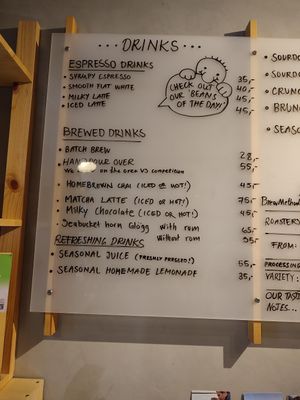 ... DRINKS ...
ESPRESSO DRINKS
• SYRUPY ESPRESSO 35,-
• SMOOTH FLAT WHITE 40,-
• MILKY LATTE 45,-
• ICED LATTE 45,-
CHECK OUT
OUR "BEANS
OF THE DAY!
BREWED DRINKS
• BATCH BREW 28,-
• HANDPOUR OVER 55,-
on the oren VS competition
• HOMEBREWN CHAI (ICED OR HOT!) 45,-
• MATCHA LATTE (ICED OR HOT!) 75,-
• Milky Chocolate (ICED OR HOT!) 45,-
• Seabucket horn Glögg with rum 65,-
Without rum 55,-
REFRESHING DRINKS
• SEASONAL JUICE (FRESHLY PRESSED!) 55,-
• SEASONAL HOMEMADE LEMONADE 35,-
SOURDO
• SOURDO
• CRUN
• BRUN
• SEASO
BrewMethod
ROASTERY
FROM:
PROCESSING
VARIETY:
OUR TAST
NOTES...